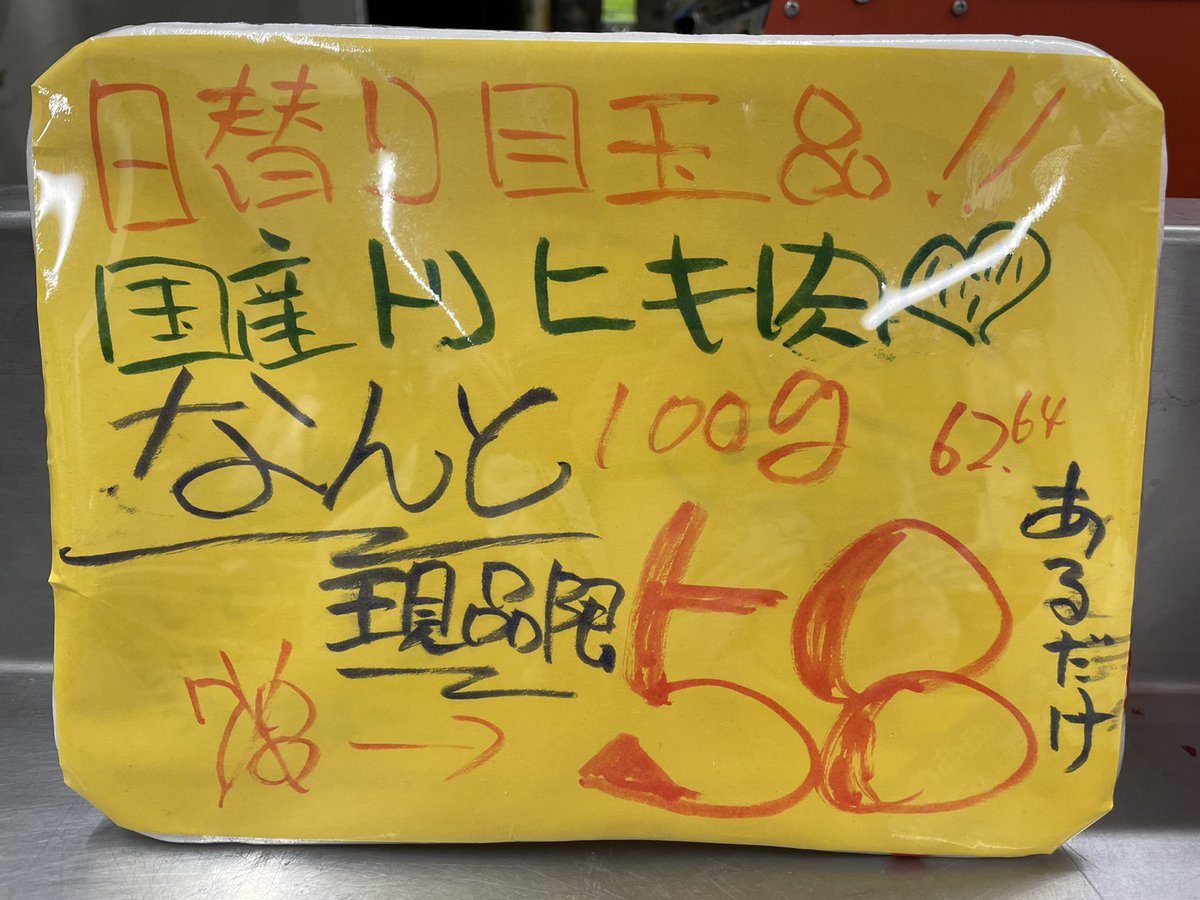 日替り目玉品!!
国産トリヒキ肉♡
なんと 100g 62.64
現品限
78→58
あるだけ